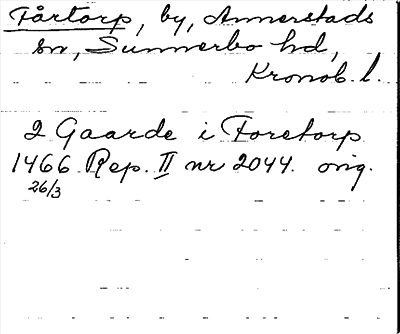 Fårtorp, by, Annerstads
sn, Sunnerbo hd,
Kronob. l.
2 Gaarde i Foretorp
1466 Rep. II nr 2044. orig.
26/3